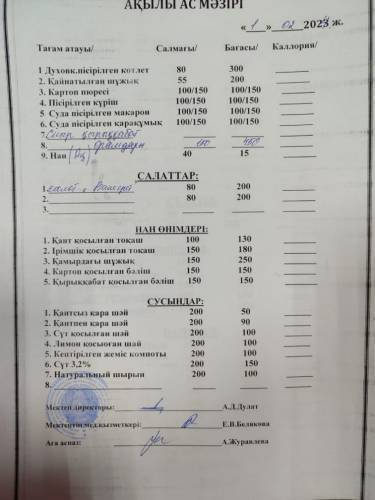 АҚЫЛЫ АС МӘЗІРІ
« 1 » 02 2024 ж.
Тағам атауы/ Салмағы/ Бағасы/ Каллория/
1 Духовк.пісірілген котлет 80 300
2. Қайнатылған шұжық 55 200
3. Картоп пюресі 100/150 100/150
4. Пісірілген күріш 100/150 100/150
5 Суда пісірілген макарон 100/150 100/150
6. Суда пісірілген қарақұмық 100/150 100/150
7.
8. 100
9. Нан 40 15
САЛАТТАР:
1. салат 80 200
2. 80 200
3.
НАН ӨНІМДЕРІ:
1. Қант қосылған тоқаш 100 130
2. Ірімшік қосылған тоқаш 150 180
3. Қамырдағы шұжық 150 250
4. Картоп қосылған бәліш 150 150
5. Қырыққабат қосылған бәліш 150 150
СУСЫНДАР:
1. Қантсыз қара шәй 200 50
2. Қантпен қара шәй 200 90
3. Сүт қосылған шәй 200 100
4. Лимон қосыоған шәй 200 100
5. Кептірілген жеміс компоты 200 100
6. Сүт 3,2% 200 150
7. Натуральный шырын 200 100
8.
Мектеп директоры: А.Д.Дулат
Мектептің мед.қызметкері: Е.В.Беликова
Аға аспаз: А.Журавлева